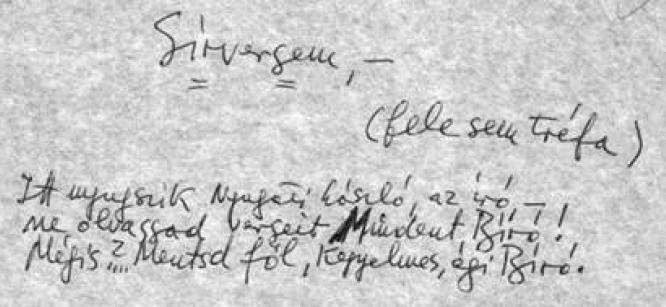 Sírversem, –
(fele sem tréfa)
Itt nyugszik Nyugati László, az író, –
ne olvassad verseit Mindent Bíró!
Mégis?... Mentsd föl, Kegyelmes, égi Bíró.